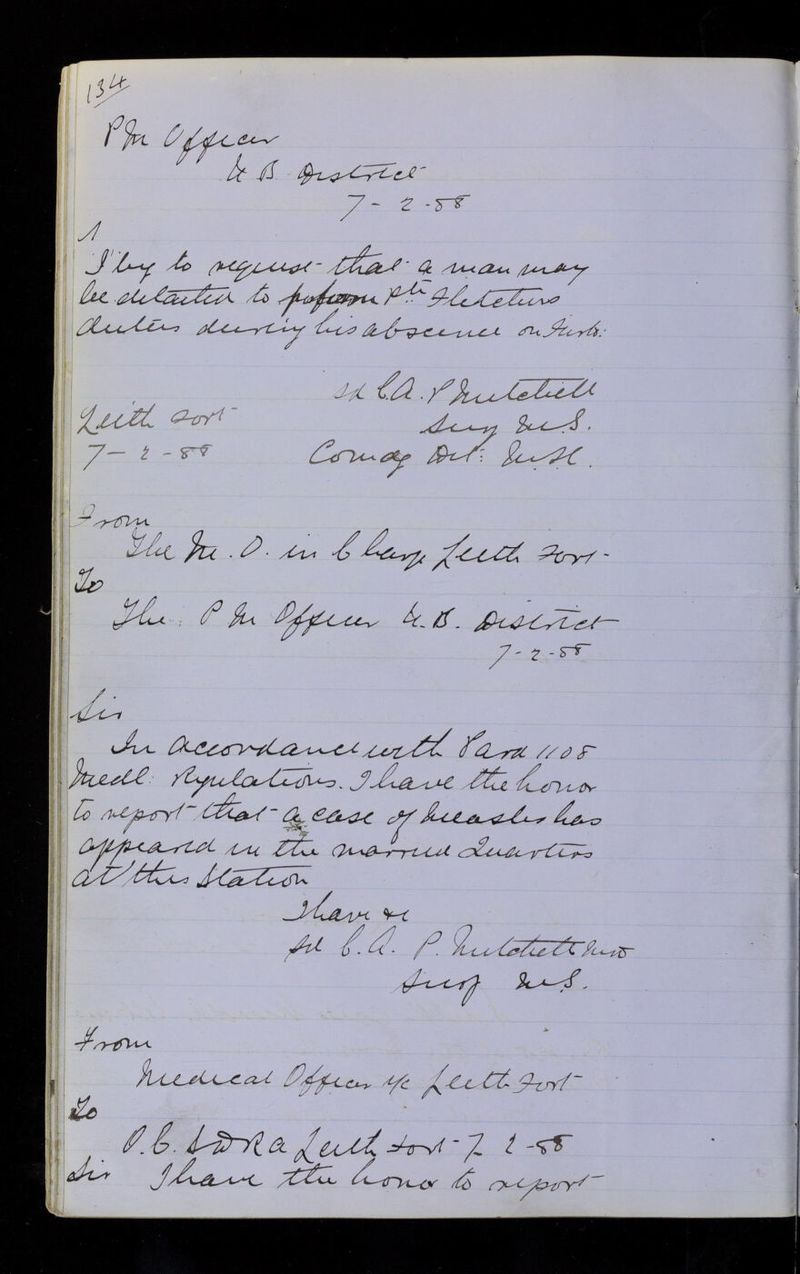 134
P M Officer
N B District
7 - 2 - 88
I beg to request that a man may
be detailed to perform Pte Fletchers
duties during his absence on Furlo:
sd C.A.P Mitchell
Leith Fort
Surg M.S.
7 - 2 - 88
Comdg Det: M.S.C.
From
The M.O. in Charge Leith Fort
To
The P M Officer N.B. District
7 - 2 - 88
Sir
In accordance with Para 1108
Medl Regulations. I have the honor
to report that a case of Measles has
appeared in the married Quarters
at this Station
I have &c
sd C.A. P. Mitchell
Surg M.S.
From
Medical Officer i/c Leith Fort
To
O.C. R A Leith Fort 7 2 - 88
Sir I have the honor to report